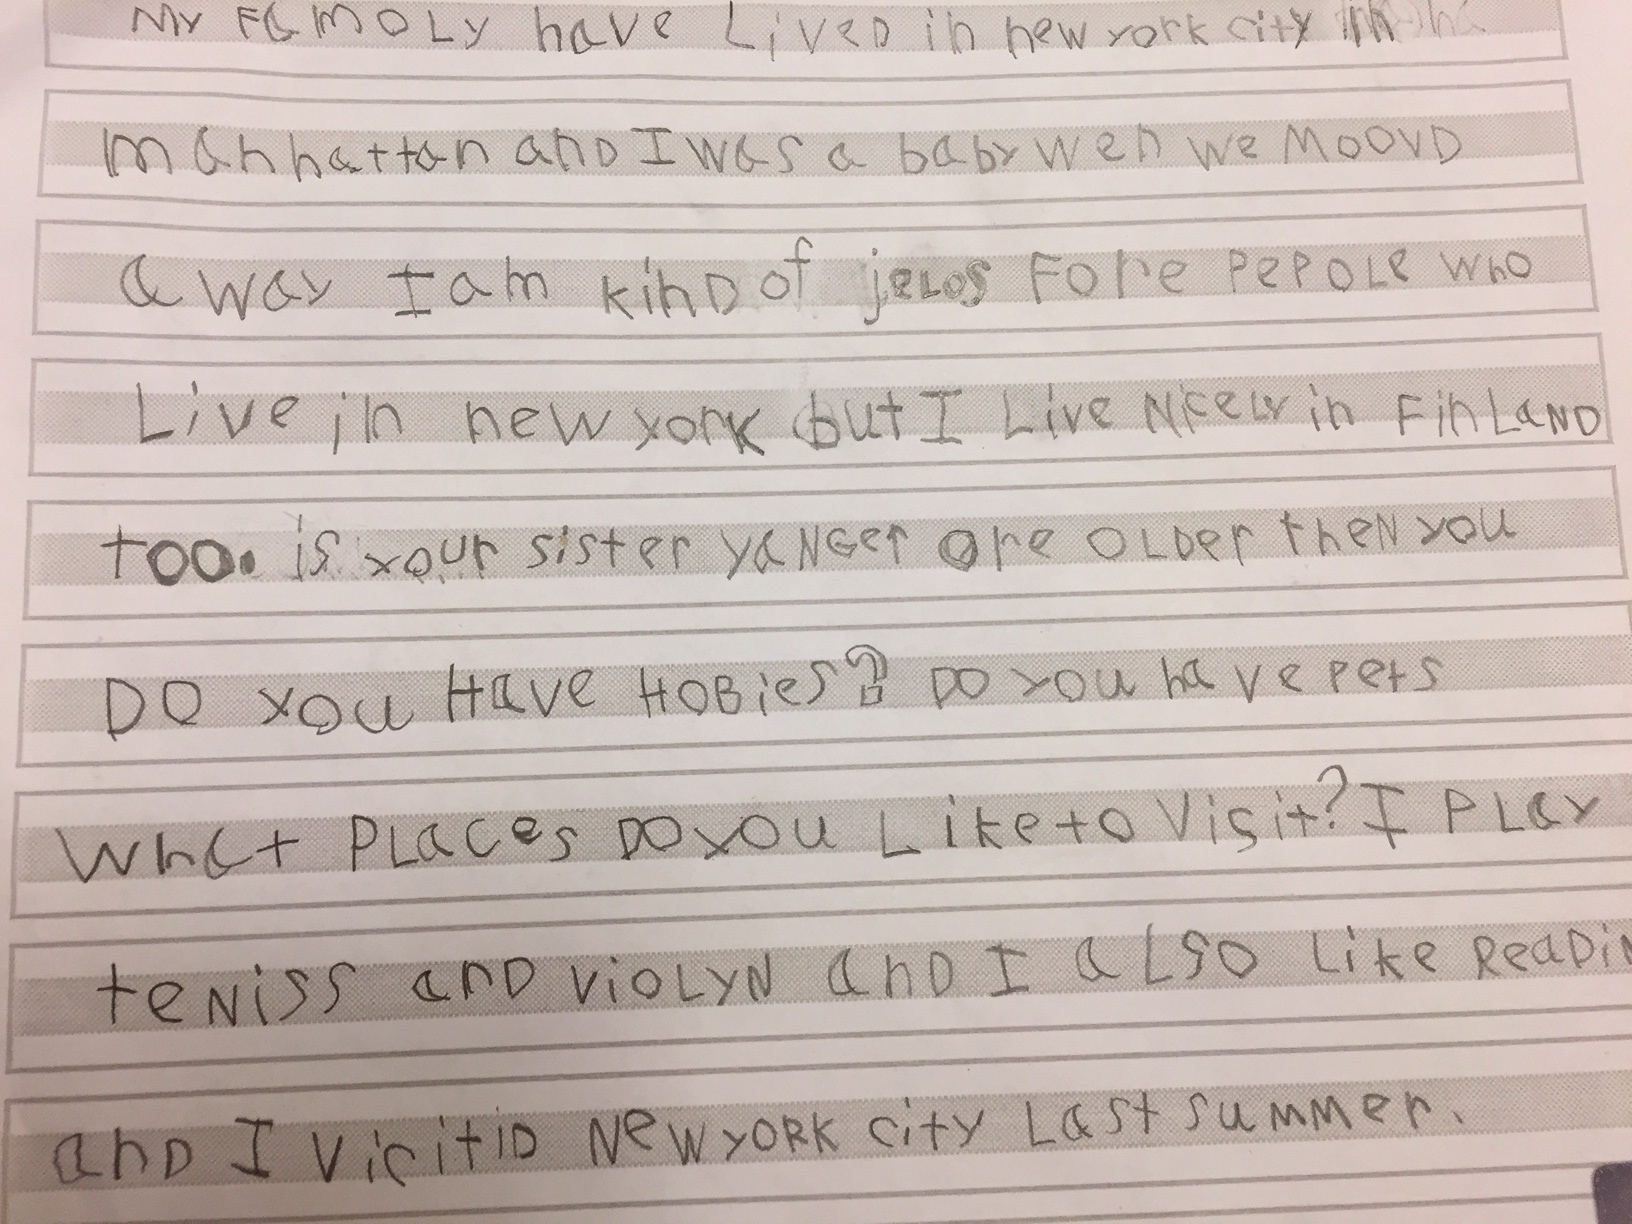 My FaMOLy have LiveD in new york city in
manhattan anD I was a baby wen we MOOVD
a way I am kinD of jeLos FOre PePOLe whO
Live in new york but I Live NiceLy in FinLanD
too. is your sister yaNGer Ore OLDer theN you
DO you Have HOBies? DO you have pets
What PLaces DO you Like to Visit? I PLay
teNiss anD VioLyN anD I aLSO Like ReaDin
anD I VicitiD New yORK city Last summer.